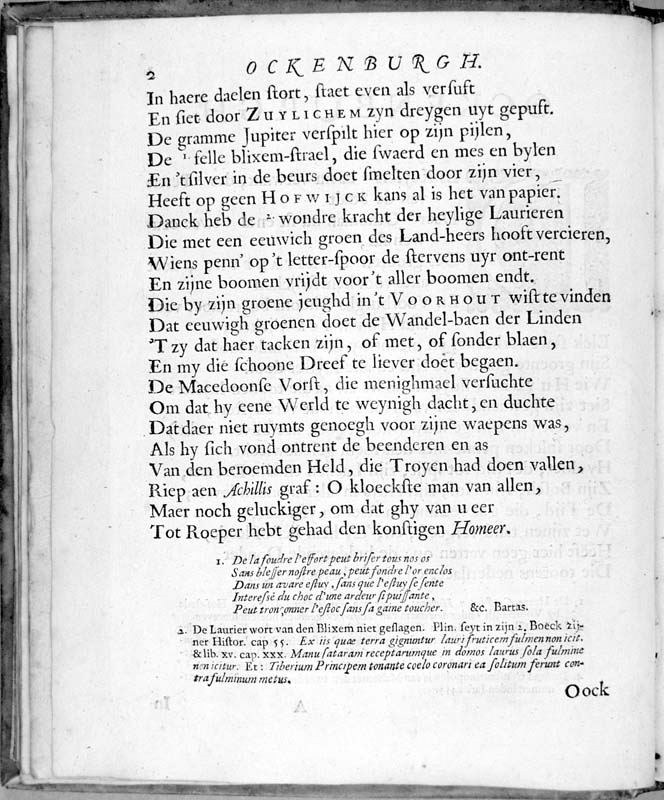 2
OCKENBURGH.
In haere daelen ſtort, ſtaet even als verſuft
En ſiet door ZUYLICHEM zyn dreygen uyt gepuft.
De gramme Jupiter verſpilt hier op zijn pijlen,
De 1. felle blixem-ſtrael, die ſwaerd en mes en bylen
En 'tſilver in de beurs doet ſmelten door zijn vier,
Heeft op geen HOFWIJCK kans al is het van papier.
Danck heb de 2. wondre kracht der heylige Laurieren
Die met een eeuwich groen des Land-heers hooft vercieren,
Wiens penn' op 't letter-ſpoor de ſtervens uyr ont-rent
En zijne boomen vrijdt voor 't aller boomen endt.
Die by zijn groene jeughd in 't VOORHOUT wiſt te vinden
Dat eeuwigh groenen doet de Wandel-baen der Linden
'T zy dat haer tacken zijn, of met, of ſonder blaen,
En my die ſchoone Dreef te liever doet begaen.
De Macedoonſe Vorſt, die menighmael verſuchte
Om dat hy eene Werld te weynigh dacht, en duchte
Dat daer niet ruymts genoegh voor zijne waepens was,
Als hy ſich vond ontrent de beenderen en as
Van den beroemden Held, die Troyen had doen vallen,
Riep aen Achillis graf: O kloeckſte man van allen,
Maer noch geluckiger, om dat ghy van u eer
Tot Roeper hebt gehad den konſtigen Homeer.
1. De la foudre l'effort peut briſer tous nos os
Sans bleſſer noſtre peau, peut fondre l'or enclos
Dans un avare eſtuy, ſans que l'eſtuy ſe ſente
Intereſſé du choc d'une ardeur ſi puiſſante,
Peut tronçonner l'eſtoc ſans ſa gaine toucher. &c. Bartas.
2. De Laurier wort van den Blixem niet geſlagen. Plin. ſeyt in zijn 2. Boeck zij-
ner Hiſtor. cap 55. Ex iis quæ terra gignuntur lauri fruticem fulmen non icit.
& lib. xv. cap. xxx. Manu ſatarum receptarumque in domos laurus ſola fulmine
non icitur. Et: Tiberium Principem tonante coelo coronari ea ſolitum ferunt con-
tra fulminum metus.
Oock